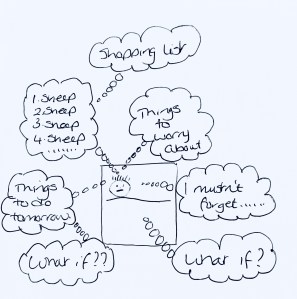 Shopping List
1. Sheep
2. Sheep
3. Sheep
4. Sheep
......
Things
to
worry
about
Things
to do
tomorrow
I mustn't
forget.....
What if??
What if?